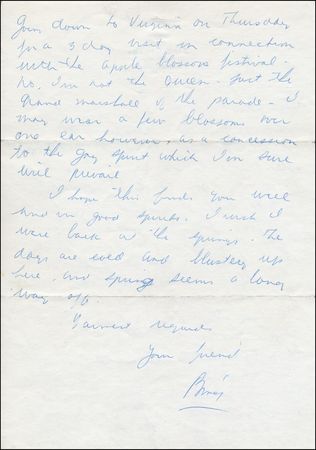 Going down to Virginia on Thursday
for a 3 day visit in connection
with the apple blossom festival.
No, I'm not the Queen - just the
Grand marshall of the parade - I
may wear a few blossoms over
one ear however, as a concession
to the gay spirit which I'm sure
will prevail
I hope this finds you well
and in good spirits. I wish I
were back at the springs. The
days are cold and blustery up
here, and spring seems a long
way off.
Warmest regards
Your friend